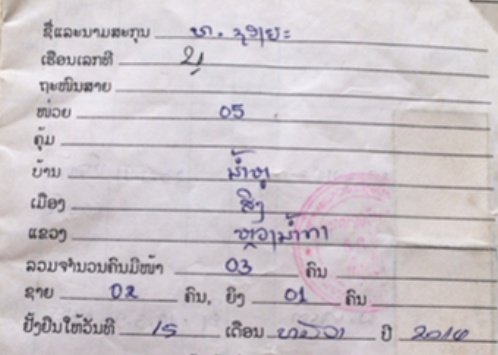 ຊື່ແລະນາມສະກຸນ ທ.
ເຮືອນເລກທີ
ຖະໜົນສາຍ
ໜ່ວຍ 05
ຄຸ້ມ
ບ້ານ
ເມືອງ ສິງ
ແຂວງ ຫຼວງນ້ຳທາ
ລວມຈຳນວນຄົນມີໜ້າ 03 ຄົນ
ຊາຍ 02 ຄົນ, ຍິງ 01 ຄົນ
ຢັ້ງຢືນໃຫ້ວັນທີ 15 ເດືອນ ທັນວາ ປີ 2014